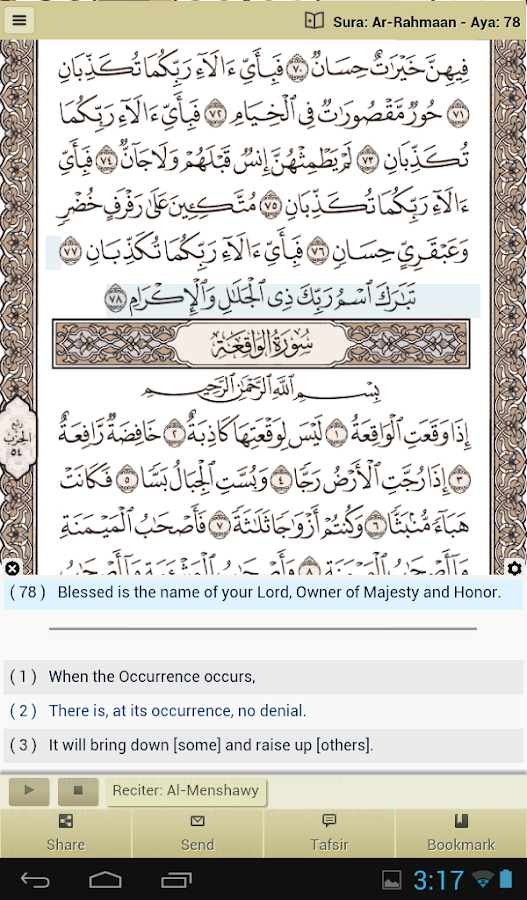 Sura: Ar-Rahmaan - Aya: 78
فِيهِنَّ خَيْرَٰتٌ حِسَانٌ ٧٠ فَبِأَيِّ ءَالَآءِ رَبِّكُمَا تُكَذِّبَانِ
٧١ حُورٌ مَّقْصُورَٰتٌ فِي ٱلْخِيَامِ ٧٢ فَبِأَيِّ ءَالَآءِ رَبِّكُمَا
تُكَذِّبَانِ ٧٣ لَمْ يَطْمِثْهُنَّ إِنسٌ قَبْلَهُمْ وَلَا جَآنٌّ ٧٤ فَبِأَيِّ
ءَالَآءِ رَبِّكُمَا تُكَذِّبَانِ ٧٥ مُتَّكِـِٔينَ عَلَىٰ رَفْرَفٍ خُضْرٍ
وَعَبْقَرِيٍّ حِسَانٍ ٧٦ فَبِأَيِّ ءَالَآءِ رَبِّكُمَا تُكَذِّبَانِ ٧٧
تَبَٰرَكَ ٱسْمُ رَبِّكَ ذِي ٱلْجَلَٰلِ وَٱلْإِكْرَامِ ٧٨
سُورَةُ الْوَاقِعَةِ
بِسْمِ ٱللَّهِ ٱلرَّحْمَٰنِ ٱلرَّحِيمِ
إِذَا وَقَعَتِ ٱلْوَاقِعَةُ ١ لَيْسَ لِوَقْعَتِهَا كَاذِبَةٌ ٢ خَافِضَةٌ رَّافِعَةٌ
٣ إِذَا رُجَّتِ ٱلْأَرْضُ رَجًّا ٤ وَبُسَّتِ ٱلْجِبَالُ بَسًّا ٥ فَكَانَتْ
هَبَآءً مُّنۢبَثًّا ٦ وَكُنتُمْ أَزْوَٰجًا ثَلَٰثَةً ٧ فَأَصْحَٰبُ ٱلْمَيْمَنَةِ
مَآ أَصْحَٰبُ ٱلْمَيْمَنَةِ ٨ وَأَصْحَٰبُ ٱلْمَشْـَٔمَةِ مَآ أَصْحَٰبُ
ربع
الحزب
٥٤
( 78 ) Blessed is the name of your Lord, Owner of Majesty and Honor.
( 1 ) When the Occurrence occurs,
( 2 ) There is, at its occurrence, no denial.
( 3 ) It will bring down [some] and raise up [others].
Reciter: Al-Menshawy
Share
Send
Tafsir
Bookmark
3:17